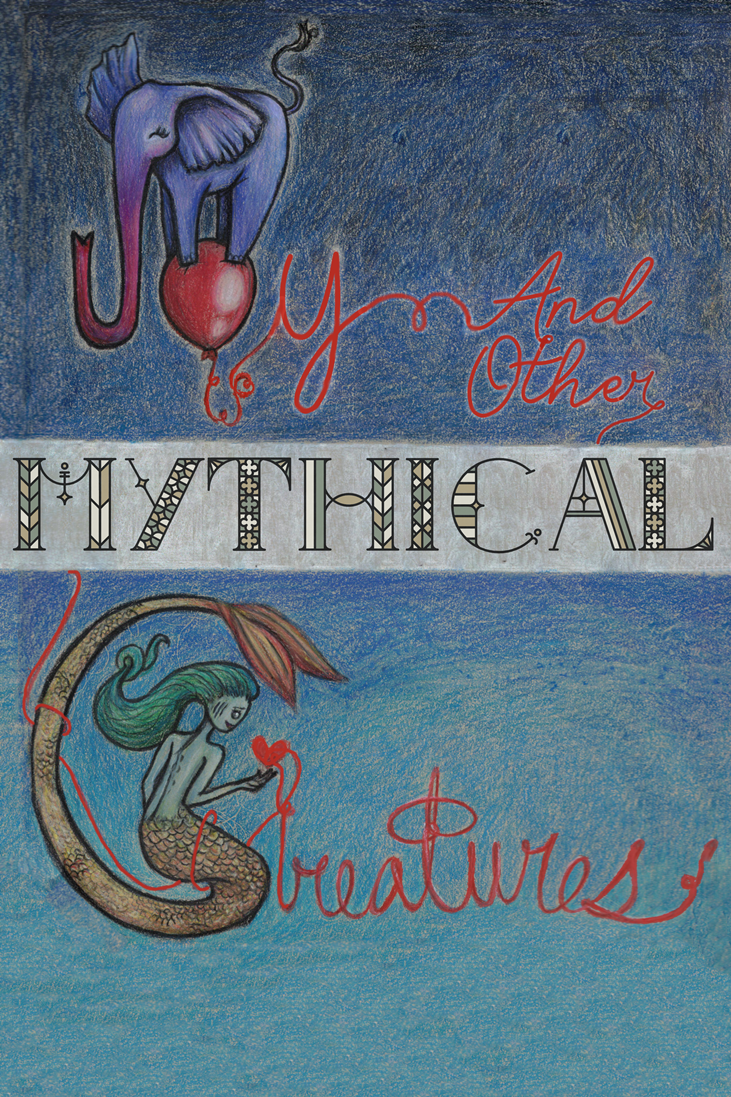 Joy And
Other
MYTHICAL
Creatures